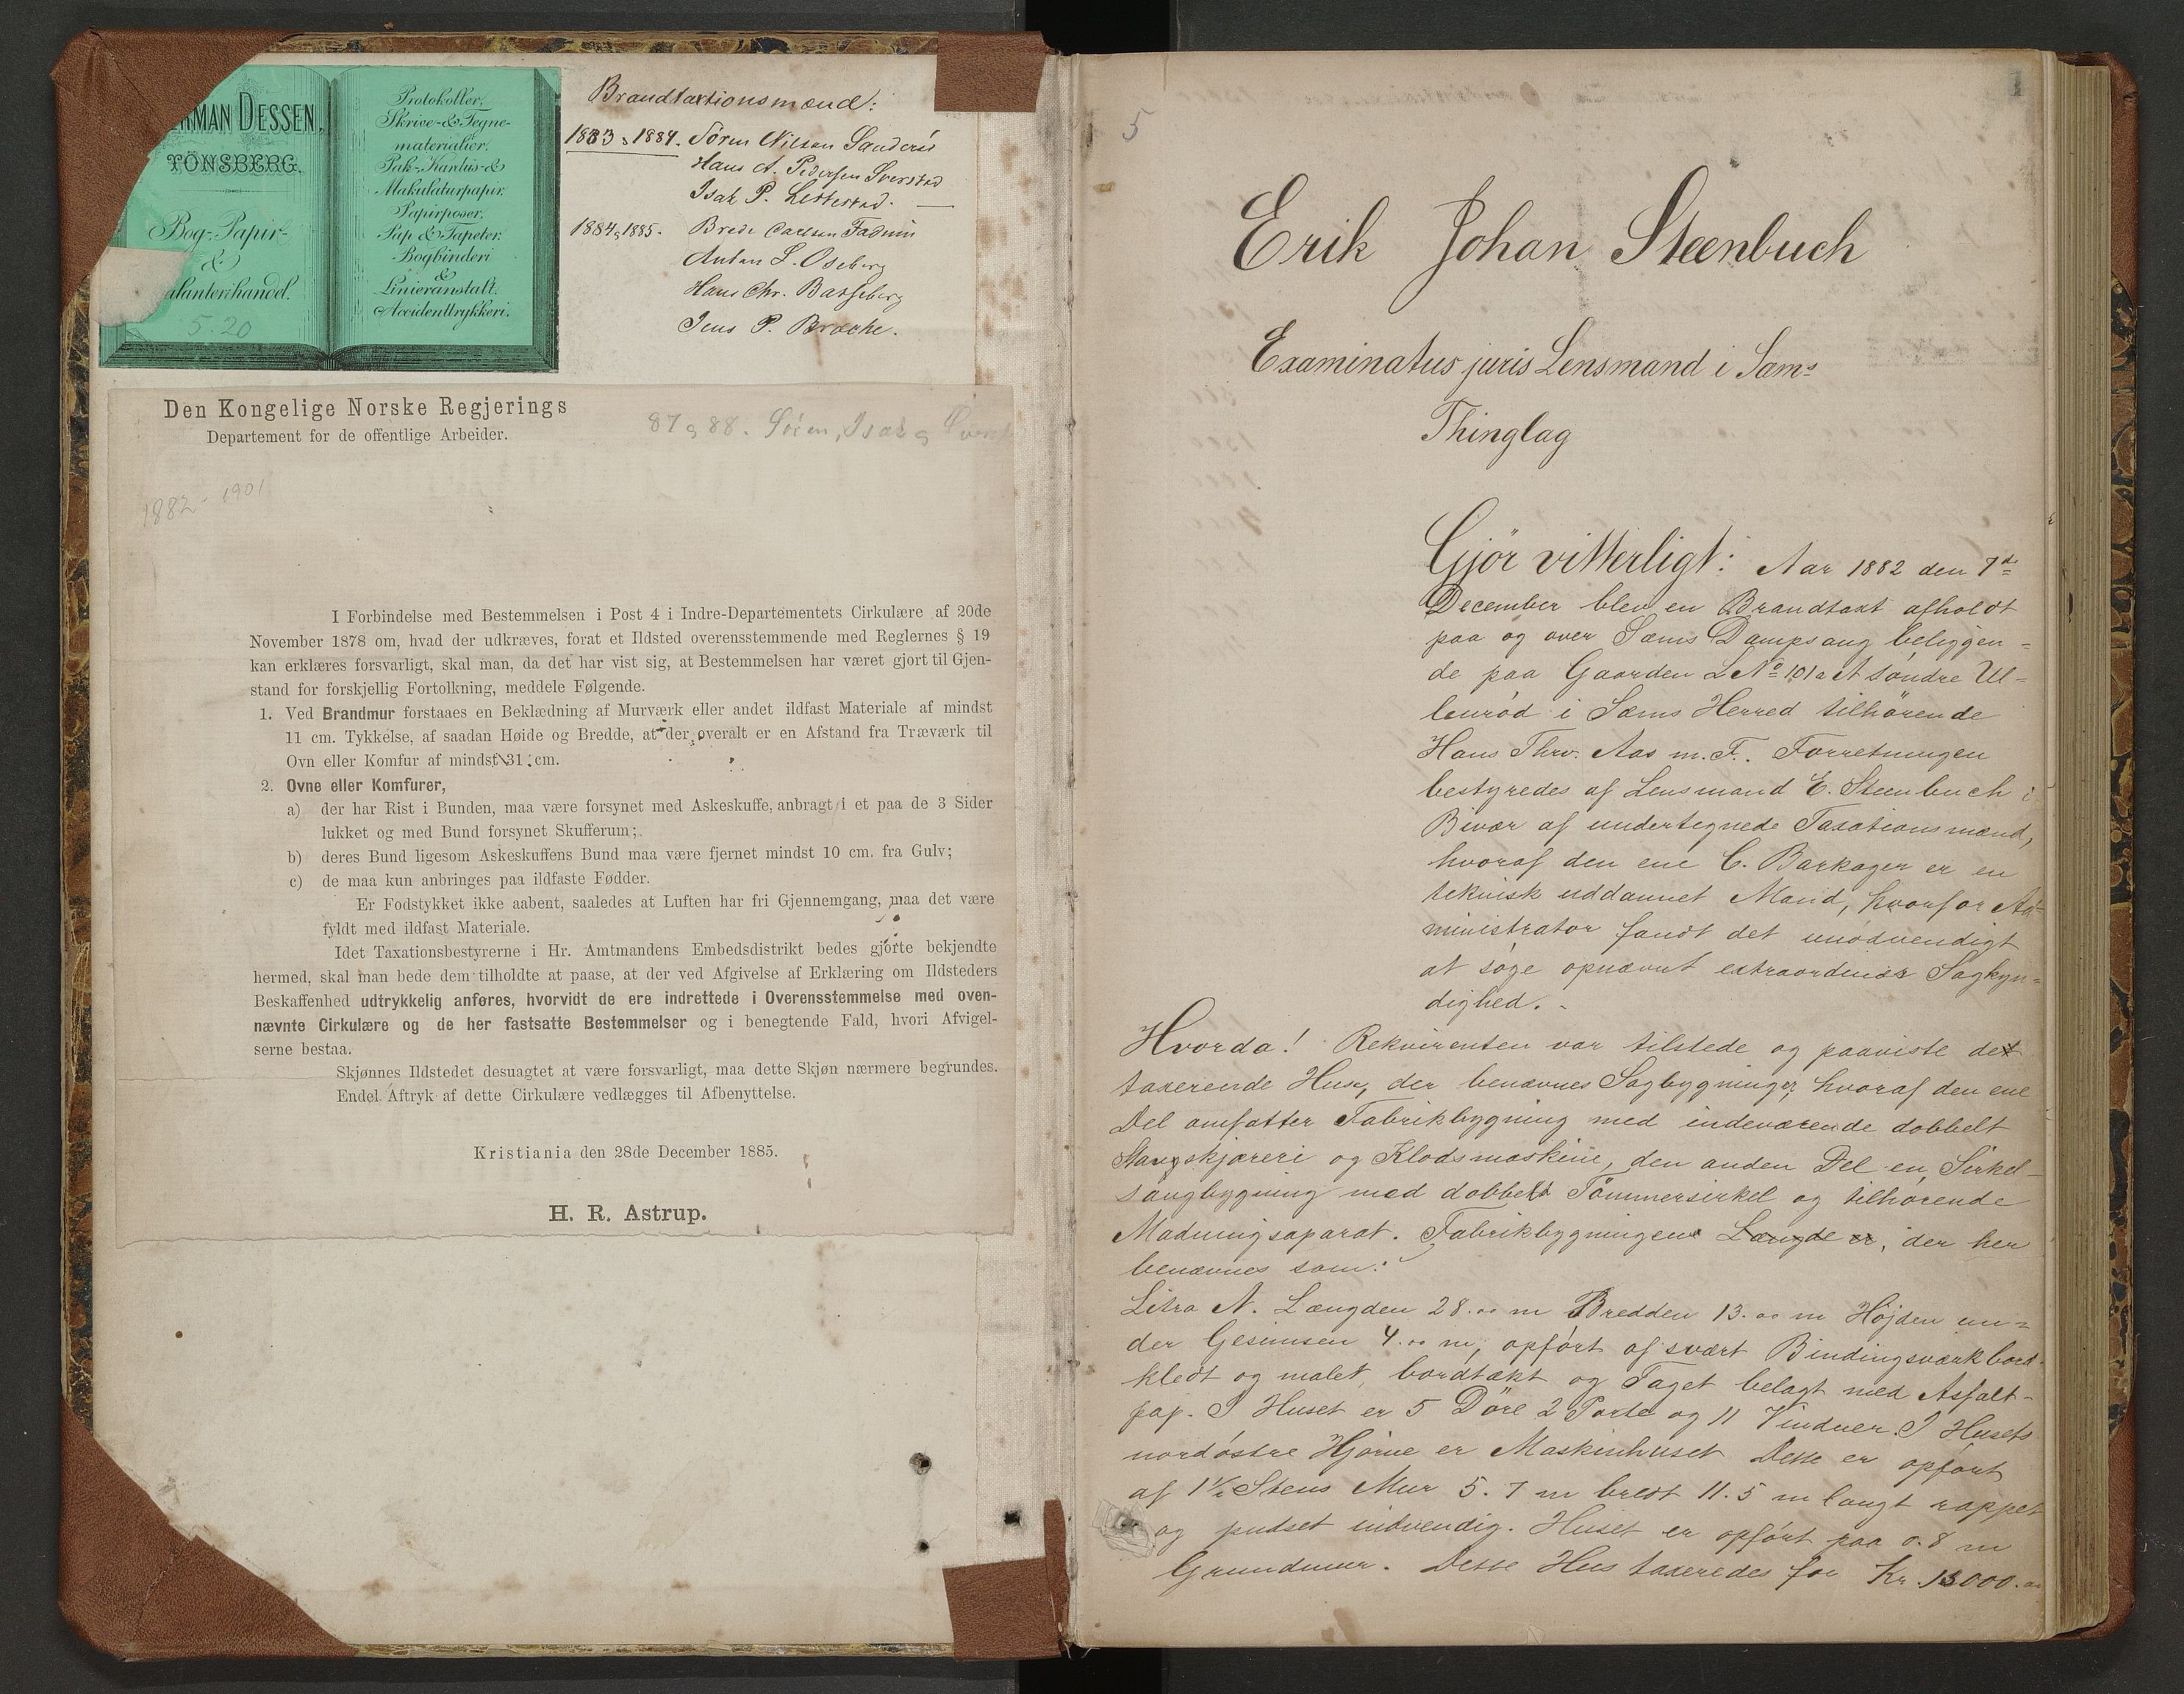 RMAN DESSEN.
TÖNSBERG.
Bog-Papir-
&
alanterihandel.
5.20
Protokoller,
Skrive-&-Tegne-
materialier.
Pak-, Kardus-&
Makulaturpapir.
Papirposer.
Pap & Tapeter.
Bogbinderi
&
Linieranstalt.
Accidenttrykkeri.
Brandtaxtionsmænd:
1883 & 1884. Sören Nilsen Sanderöd
Hans A. Pedersen
Isak P.
1884 & 1885. Brede Carlsen Fadum
Anton L. Oseberg
Hans Chr. Basseberg
Jens P. Brække.
Den Kongelige Norske Regjerings
Departement for de offentlige Arbeider.
87 & 88. Sören, Isak &
1882 - 1901
I Forbindelse med Bestemmelsen i Post 4 i Indre-Departementets Cirkulære af 20de
November 1878 om, hvad der udkræves, forat et Ildsted overensstemmende med Reglernes § 19
kan erklæres forsvarligt, skal man, da det har vist sig, at Bestemmelsen har været gjort til Gjen-
stand for forskjellig Fortolkning, meddele Følgende.
1. Ved Brandmur forstaaes en Beklædning af Murværk eller andet ildfast Materiale af mindst
11 cm. Tykkelse, af saadan Høide og Bredde, at der overalt er en Afstand fra Træværk til
Ovn eller Komfur af mindst 31 cm.
2. Ovne eller Komfurer,
a) der har Rist i Bunden, maa være forsynet med Askeskuffe, anbragt i et paa de 3 Sider
lukket og med Bund forsynet Skufferum;
b) deres Bund ligesom Askeskuffens Bund maa være fjernet mindst 10 cm. fra Gulv;
c) de maa kun anbringes paa ildfaste Fødder.
Er Fodstykket ikke aabent, saaledes at Luften har fri Gjennemgang, maa det være
fyldt med ildfast Materiale.
Idet Taxationsbestyrerne i Hr. Amtmandens Embedsdistrikt bedes gjorte bekjendte
hermed, skal man bede dem tilholdte at paase, at der ved Afgivelse af Erklæring om Ildsteders
Beskaffenhed udtrykkelig anføres, hvorvidt de ere indrettede i Overensstemmelse med oven-
nævnte Cirkulære og de her fastsatte Bestemmelser og i benegtende Fald, hvori Afvigel-
serne bestaa.
Skjønnes Ildstedet desuagtet at være forsvarligt, maa dette Skjøn nærmere begrundes.
Endel Aftryk af dette Cirkulære vedlægges til Afbenyttelse.
Kristiania den 28de December 1885.
H. R. Astrup.
1
5
Erik Johan Steenbuch
Examinatus juris Lensmand i Sæms
Thinglag
Gjör vitterligt: Aar 1882 den 7de
December blev en Brandtaxt afholdt
paa og over Sæms Dampsaug beliggen-
de paa Gaarden L No 101a A söndre Ul-
leröd i Sæms Herred tilhörende
Hans Thrv. Aas m. F. Forretningen
bestyredes af Lensmand E. Steenbuch i
Bivær af undertegnede Taxationsmænd,
hvoraf den ene C. Barkager er en
teknisk uddannet Mand, hvorfor Ad-
ministrator fandt det unödvendigt
at söge opnævnt extraordinær Sagkyn-
dighed. -
Hvorda! Rekvirenten var tilstede og paaviste det
taxerende Hus, der benævnes Sagbygninger, hvoraf den ene
Del omfatter Fabrikbygning med indeværende dobbelt
Stavskjæreri og Klodsmaskine, den anden Del en Sirkel-
saugbygning med dobbelt Tömmersirkel og tilhörende
Madningsaparat. Fabrikbygningens Længde er, der her
benævnes som:
Litra A. Længden 28.00 m Bredden 13.00 m Höjden un-
der Gesimsen 4.00 m, opfört af svært Bindingsværk bord-
klædt og malet, bordtækt og Taget belagt med Asfalt-
pap. I Huset er 5 Döre 2 Porte og 11 Vinduer. I Husets
nordöstre Hjörne er Maskinhuset Dette er opfört
af 1½ Stens Mur 5.7 m bredt 11.5 m langt rappet
og pudset indvendig. Huset er opfört paa 0.8 m
Grundmur. Dette Hus taxeredes for Kr. 13000.00